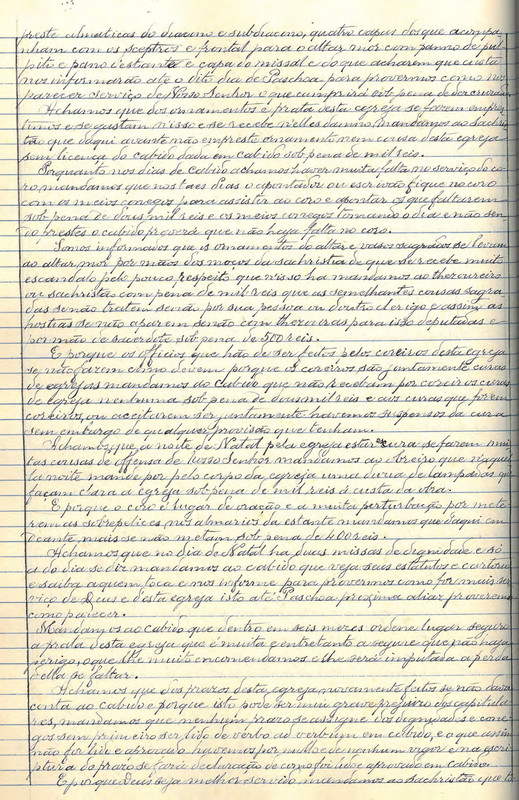 preste almaticas do diacono e subdiacono, quatro capas dos que acompa-
nham com os sceptros e frontal para o altar mór com panno de pul-
pito e pano d'estante e capa do missal e do que acharem que custa
nos informarão até o dito dia de Paschoa para provermos como nos
parecer serviço de Nosso Senhor o que cumprirá sob pena de
Achamos que dos ornamentos e prata desta egreja se fazem empres-
timos e se gastam nisso e se recebe nelles damno, mandamos ao sachris-
tão que daqui avante não empreste ornamento nem cousa desta egreja
sem licença do cabido dada em cabido sob pena de mil reis.
Porquanto nos dias de cabido achamos haver muita falta no serviço do co-
ro, mandamos que nos taes dias o apontador ou escrivão fique no coro
com os meios conegos para assistir ao coro e apontar os que faltarem
sob pena de dous mil reis e os meios conegos tomando o dia e não sen-
do prestes o cabido proverá que não haja falta no coro.
Somos informados que os ornamentos do altar e vasos sagrados se levam
ao altar mor por mãos dos moços da sachristia de que se recebe muito
escandalo pelo pouco respeito que nisso ha mandamos ao thesoureiro
ou sachristão com pena de mil reis que as semelhantes cousas sagra-
das se não tratem senão por sua pessoa ou doutro clerigo e assim as
hostias se não aparem senão com thezouras para isso deputadas e
por mão de sacerdote sob pena de 500 reis.
E porque os officios que hão de ser feitos pelos coreiros desta egreja
se não fazem como devem porque os coreiros são juntamente curas
de egrejas mandamos ao cabido que não recebam por coreiros curas
de egreja nenhuma sob pena de dous mil reis e aos curas que forem
coreiros, ou aceitarem ser juntamente havemos suspensos da cura
sem embargo de qualquer provisão que tenham.
Achamos que a noite de Natal pela egreja estar escura se fazem mui-
tas cousas de offensa de Nosso Senhor mandamos ao obreiro que naquel-
la noite mande por pelo corpo da egreja uma duzia de lampadas que
façam clara a egreja sob pena de mil reis á custa da obra.
E porque o coro é lugar de oração e a muita perturbação por mete-
rem as sobrepelices nos almarios da estante mandamos que daqui em
deante mais se não metam sob pena de 400 reis.
Achamos que no dia de Natal ha duas missas de dignidade e só
a do dia se diz mandamos ao cabido que veja seus estatutos e
e saiba a quem toca e nos informe para provermos como for mais ser-
viço de Deus e desta egreja isto até Paschoa proxima aliaz proveremos
como parecer.
Mandamos ao cabido que dentro em seis mezes ordene lugar seguro
a prata desta egreja que é muita e entretanto a segure que não haja
perigo, o que lhe muito encomendamos e lhe será imputada a perda
della se faltar.
Achamos que dos prazos desta egreja novamente feitos se não dava
conta ao cabido e porque isto pode ser mui grave prejuizo dos capitula-
res, mandamos que nenhum prazo se assigne dos degnidades e cone-
gos sem primeiro ser lido de verbo ad verbum em cabido, e o que assim
não for lido e aprovado havemos por nullo e de nenhum vigor e na escri-
ptura do prazo se fará declaração de como foi lido e aprovado em cabido.
E porque Deus seja melhor servido mandamos ao sachristão que to-